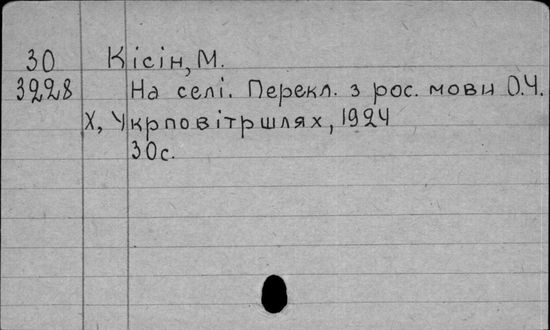 30 Кісін, М.
3228 На селі. Перекл. з рос. мови О.Ч.
Х, Укрповітршлях, 1924
30с.